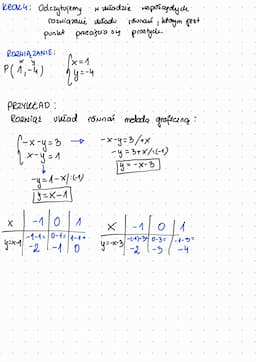 KROK 4: Odczytujemy w układzie współrzędnych
rozwiązanie układu równań, którym jest
punkt przecięcia się prostych.
ROZWIĄZANIE:
x y
P(1,-4) {x=1
{y=-4
PRZYKŁAD:
Rozwiąż układ równań metodą graficzną:
{-x-y=3 → -x-y=3/+x
{x-y=1 -y=3+x/:(-1)
↓ y=-x-3
-y=1-x/:(-1)
y=x-1
x | -1 | 0 | 1 x | -1 | 0 | 1
y=x-1 | -1-1= -2 | 0-1= -1 | 1-1= 0 y=-x-3 | -(-1)-3= -2 | 0-3= -3 | -1-3= -4